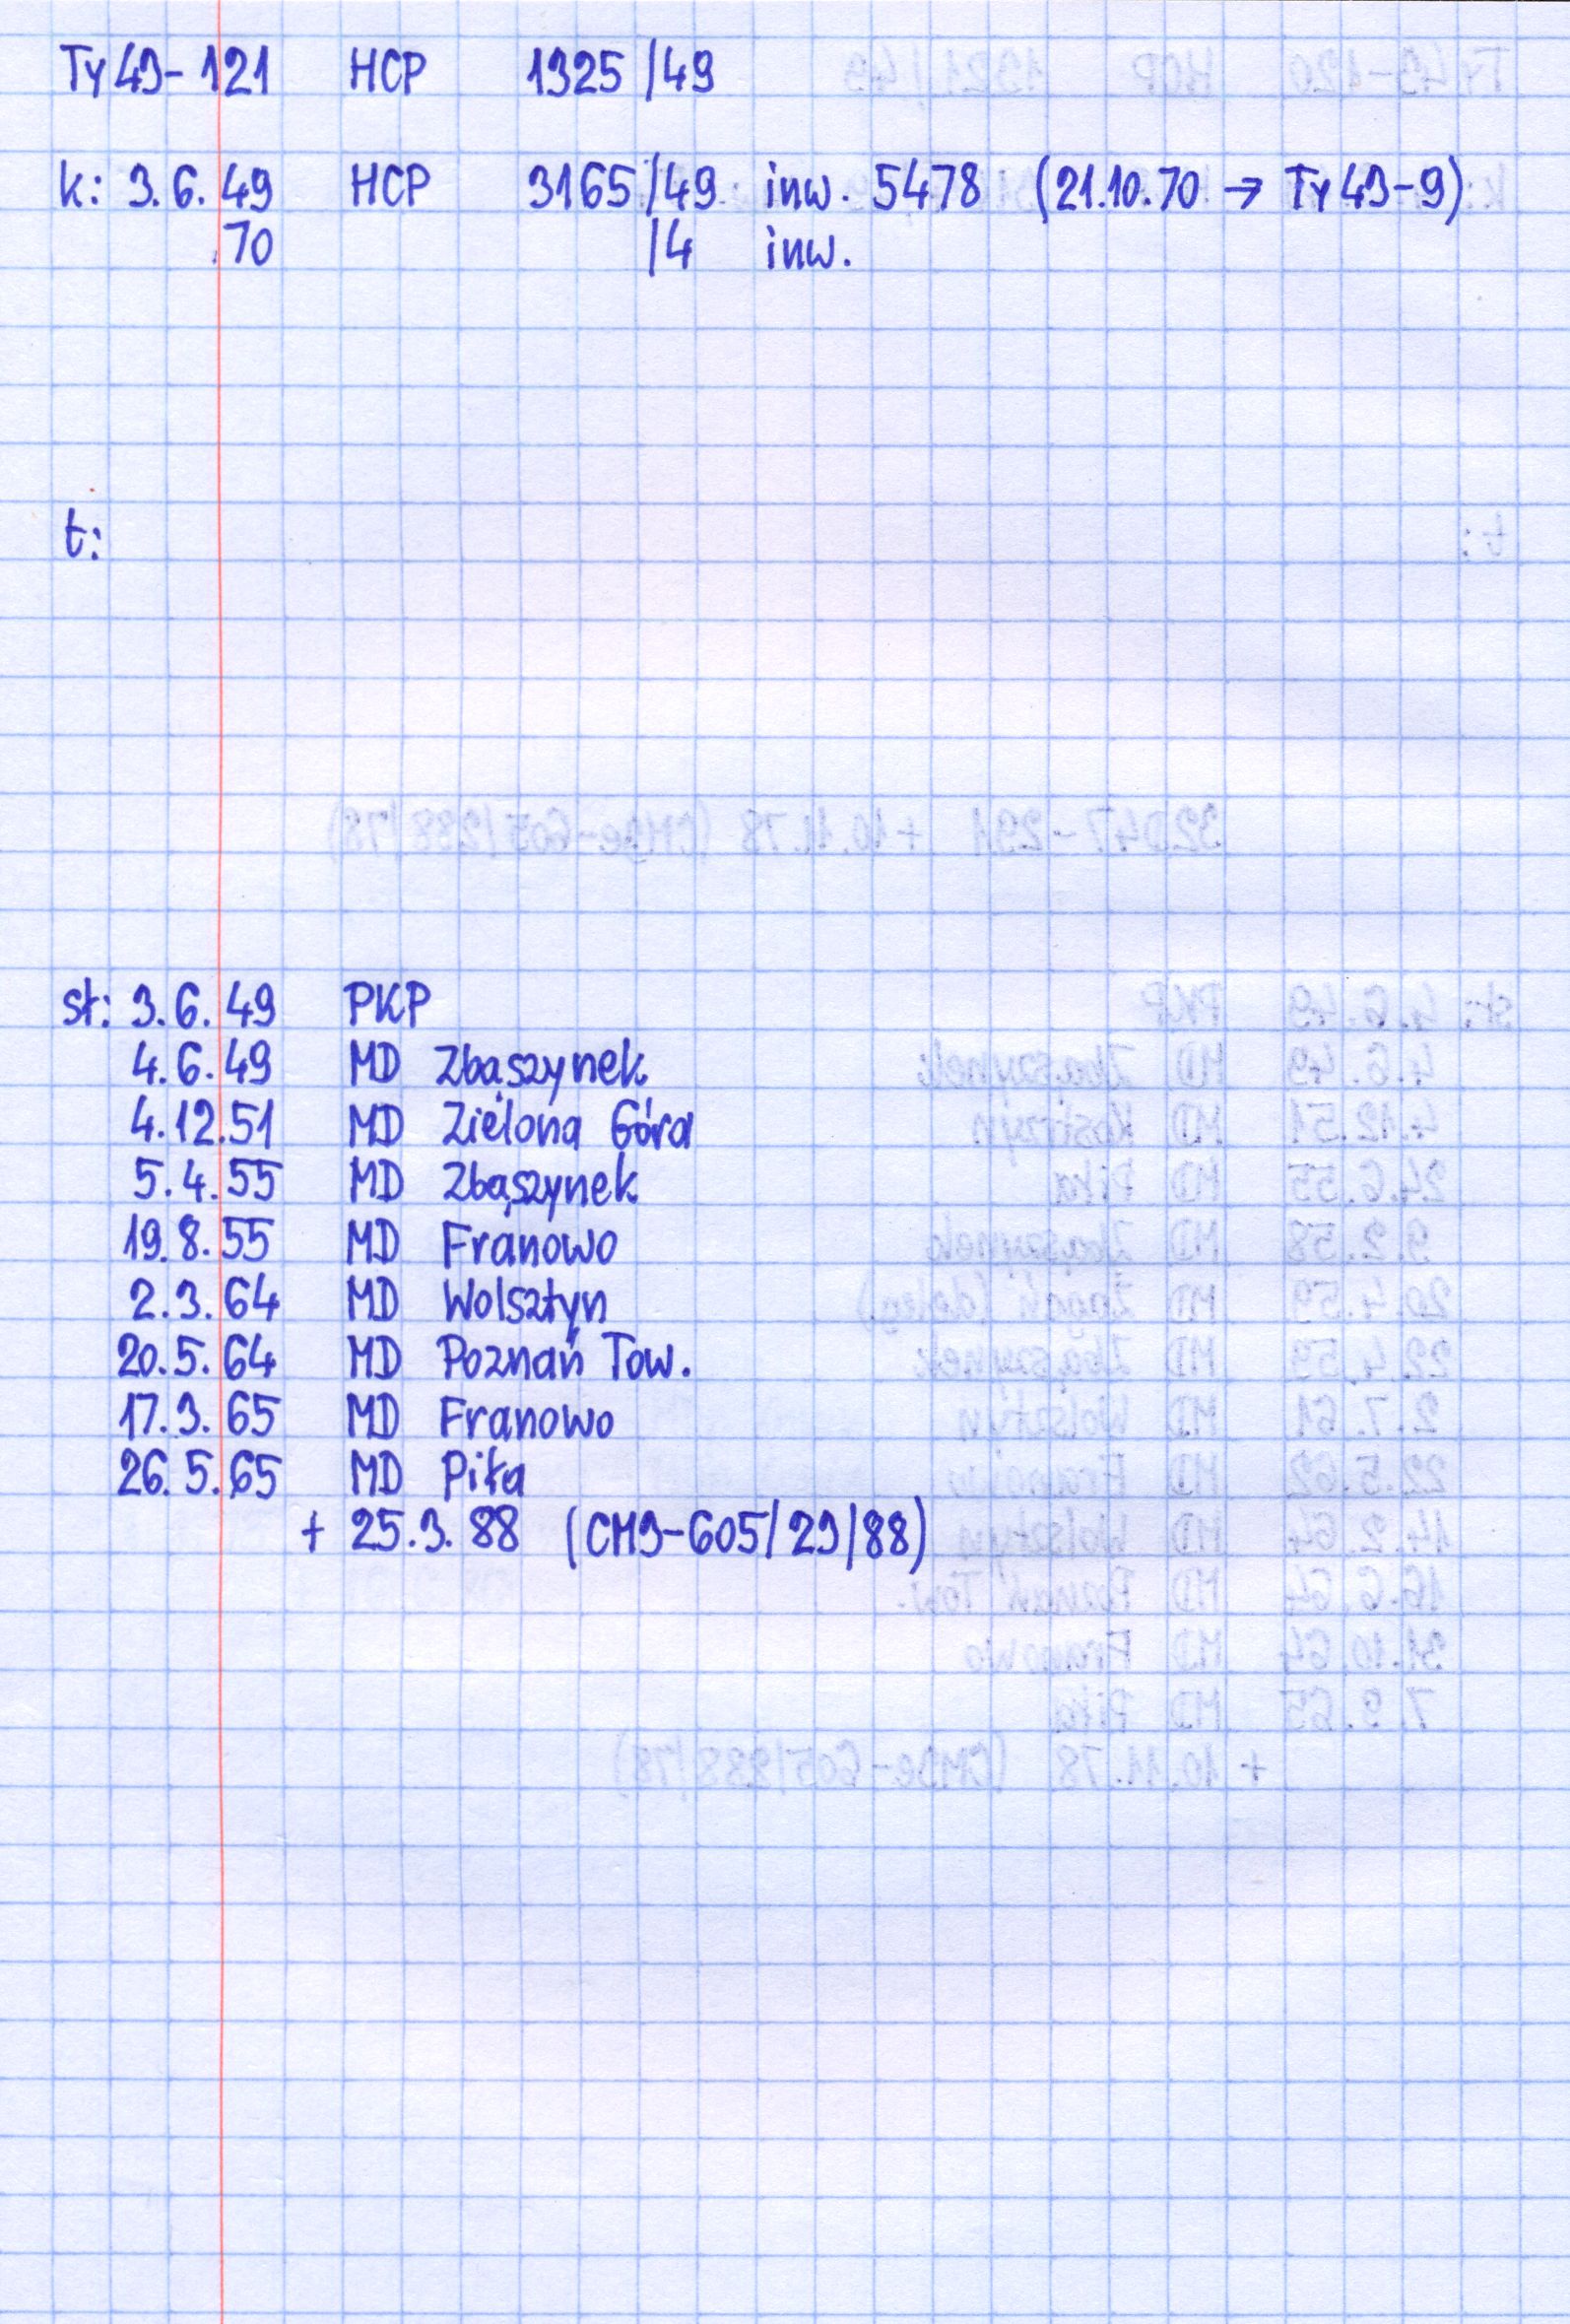 Ty43-121 HCP 1325/49
k: 3.6.49 HCP 3165/49 inw. 5478 (21.10.70 → Ty43-9)
.70 /4 inw.
t:
st: 3.6.49 PKP
4.6.49 MD Zbąszynek
4.12.51 MD Zielona Góra
5.4.55 MD Zbąszynek
19.8.55 MD Franowo
2.3.64 MD Wolsztyn
20.5.64 MD Poznań Tow.
17.3.65 MD Franowo
26.5.65 MD Piła
+ 25.3.88 (CM3-605/23/88)